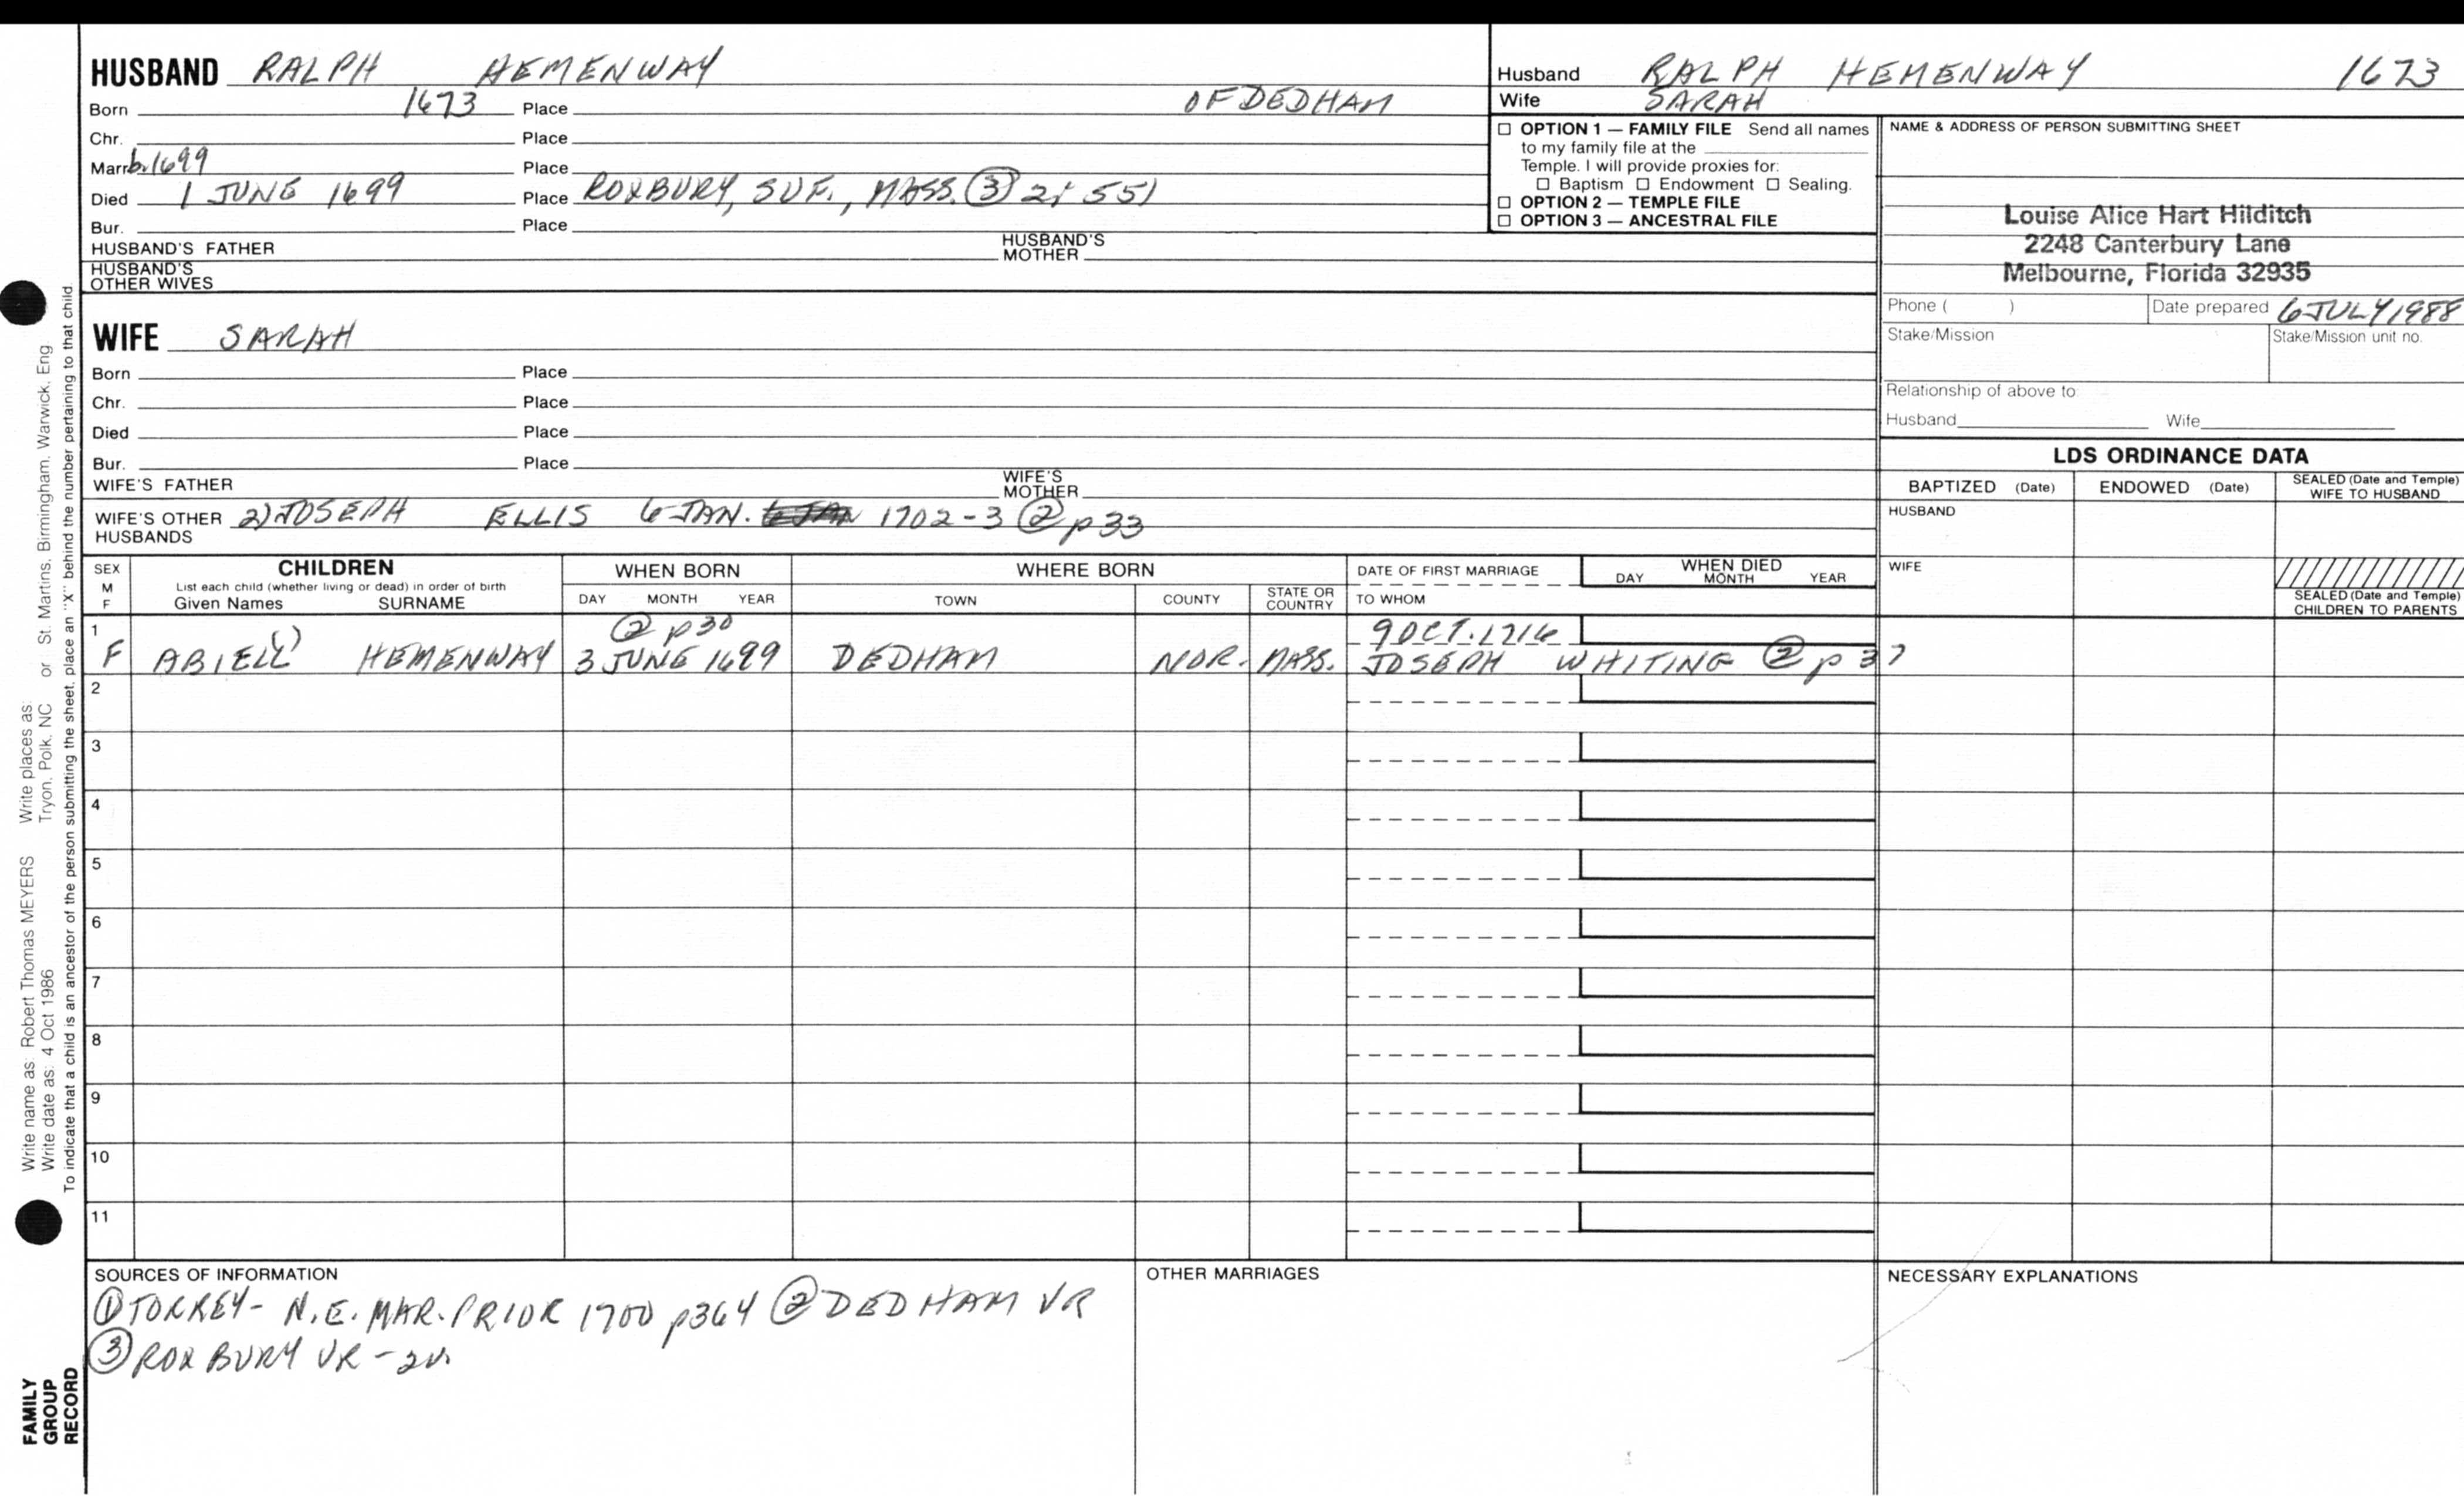 HUSBAND RALPH HEMENWAY
Born 1673 Place OF DEDHAM
Chr. Place
Marr. b. 1699 Place
Died 1 JUNE 1699 Place ROXBURY, SUF., MASS. (3) 2: 551
Bur. Place
HUSBAND'S FATHER HUSBAND'S MOTHER
HUSBAND'S OTHER WIVES
Husband RALPH HEMENWAY 1673
Wife SARAH
☐ OPTION 1 — FAMILY FILE Send all names
to my family file at the
Temple. I will provide proxies for:
☐ Baptism ☐ Endowment ☐ Sealing.
☐ OPTION 2 — TEMPLE FILE
☐ OPTION 3 — ANCESTRAL FILE
NAME & ADDRESS OF PERSON SUBMITTING SHEET
Louise Alice Hart Hilditch
2248 Canterbury Lane
Melbourne, Florida 32935
Phone ( ) Date prepared 6 JULY 1988
Stake/Mission Stake/Mission unit no.
Relationship of above to
Husband Wife
WIFE SARAH
Born Place
Chr. Place
Died Place
Bur. Place
WIFE'S FATHER WIFE'S MOTHER
WIFE'S OTHER HUSBANDS 2) JOSEPH ELLIS 6 JAN. 1702-3 (2) p33
LDS ORDINANCE DATA
BAPTIZED (Date) ENDOWED (Date) SEALED (Date and Temple) WIFE TO HUSBAND
HUSBAND
WIFE
SEALED (Date and Temple) CHILDREN TO PARENTS
SEX M F CHILDREN WHEN BORN WHERE BORN DATE OF FIRST MARRIAGE WHEN DIED
List each child (whether living or dead) in order of birth
Given Names SURNAME DAY MONTH YEAR TOWN COUNTY STATE OR COUNTRY TO WHOM DAY MONTH YEAR
1 (2) p30 9 OCT. 1716
F ABIELL() HEMENWAY 3 JUNE 1699 DEDHAM NOR. MASS. JOSEPH WHITING (2) p 37
2
3
4
5
6
7
8
9
10
11
SOURCES OF INFORMATION
(1) TORREY- N.E. MAR. PRIOR 1700 p364 (2) DEDHAM VR
(3) ROXBURY VR - 2v.
OTHER MARRIAGES
NECESSARY EXPLANATIONS
Write name as: Robert Thomas MEYERS Write places as:
Write date as: 4 Oct 1986 Tryon, Polk, NC or St. Martins, Birmingham, Warwick, Eng
To indicate that a child is an ancestor of the person submitting the sheet, place an "X" behind the number pertaining to that child
FAMILY
GROUP
RECORD